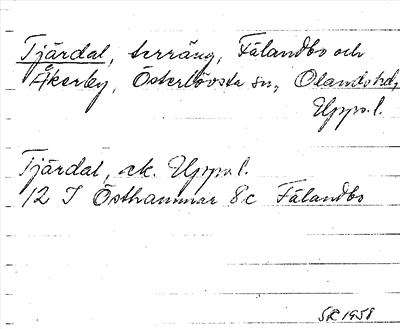 Tjärdal, terräng, Fälandbo och
Åkerby, Österlövsta sn, Olands hd,
Upps. l.
Tjärdal, ek. Upps. l.
12 I Östhammar 8c Fälandbo
SR 1958